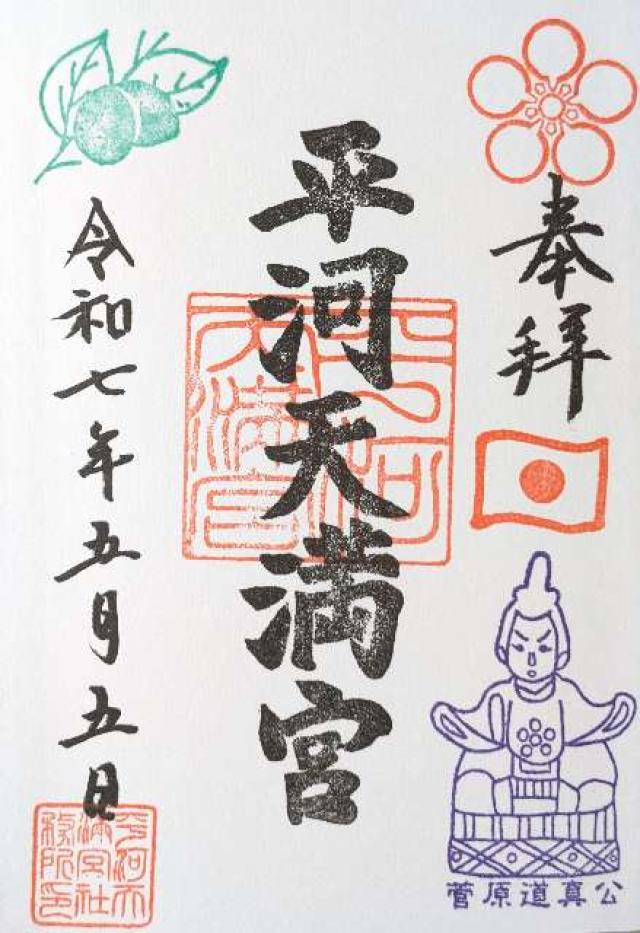 奉拝
平河天満宮
平河天満宮
令和七年五月五日
平河天満宮社務所印
菅原道真公